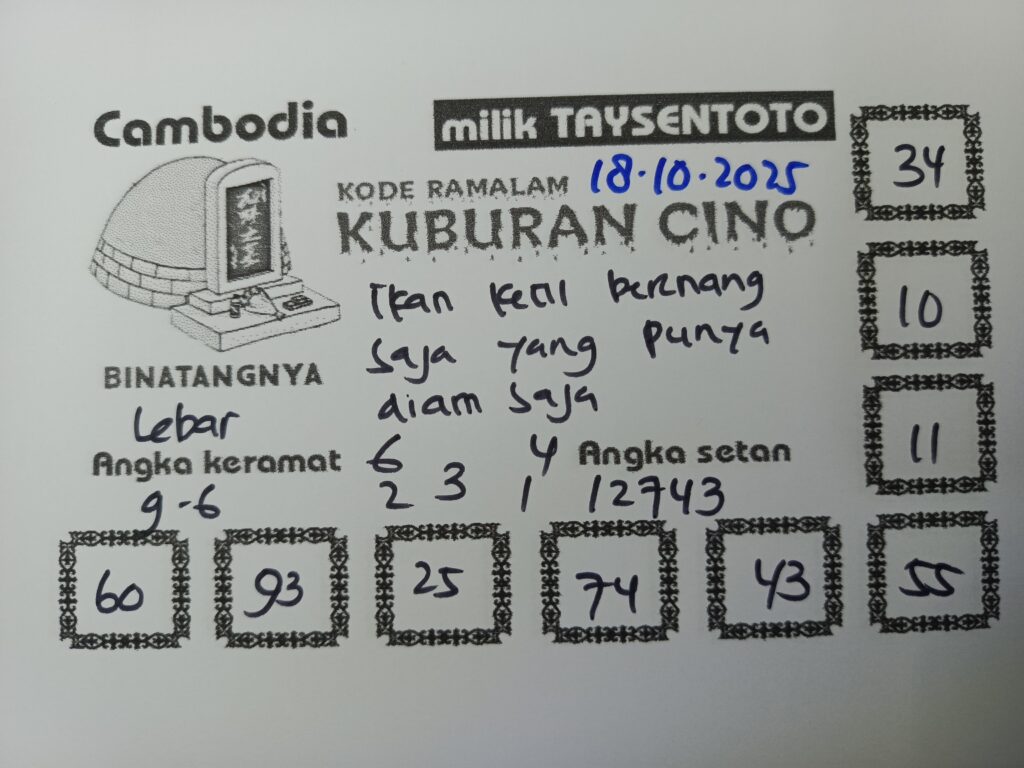 Cambodia
milik TAYSENTOTO
KODE RAMALAM 18.10.2025
KUBURAN CINO
Ikan kecil berenang
saja yang punya
diam saja
BINATANGNYA
Lebar
Angka keramat
9-6
6 4
3
2 1
Angka setan
12743
34
10
11
60 93 25 74 43 55